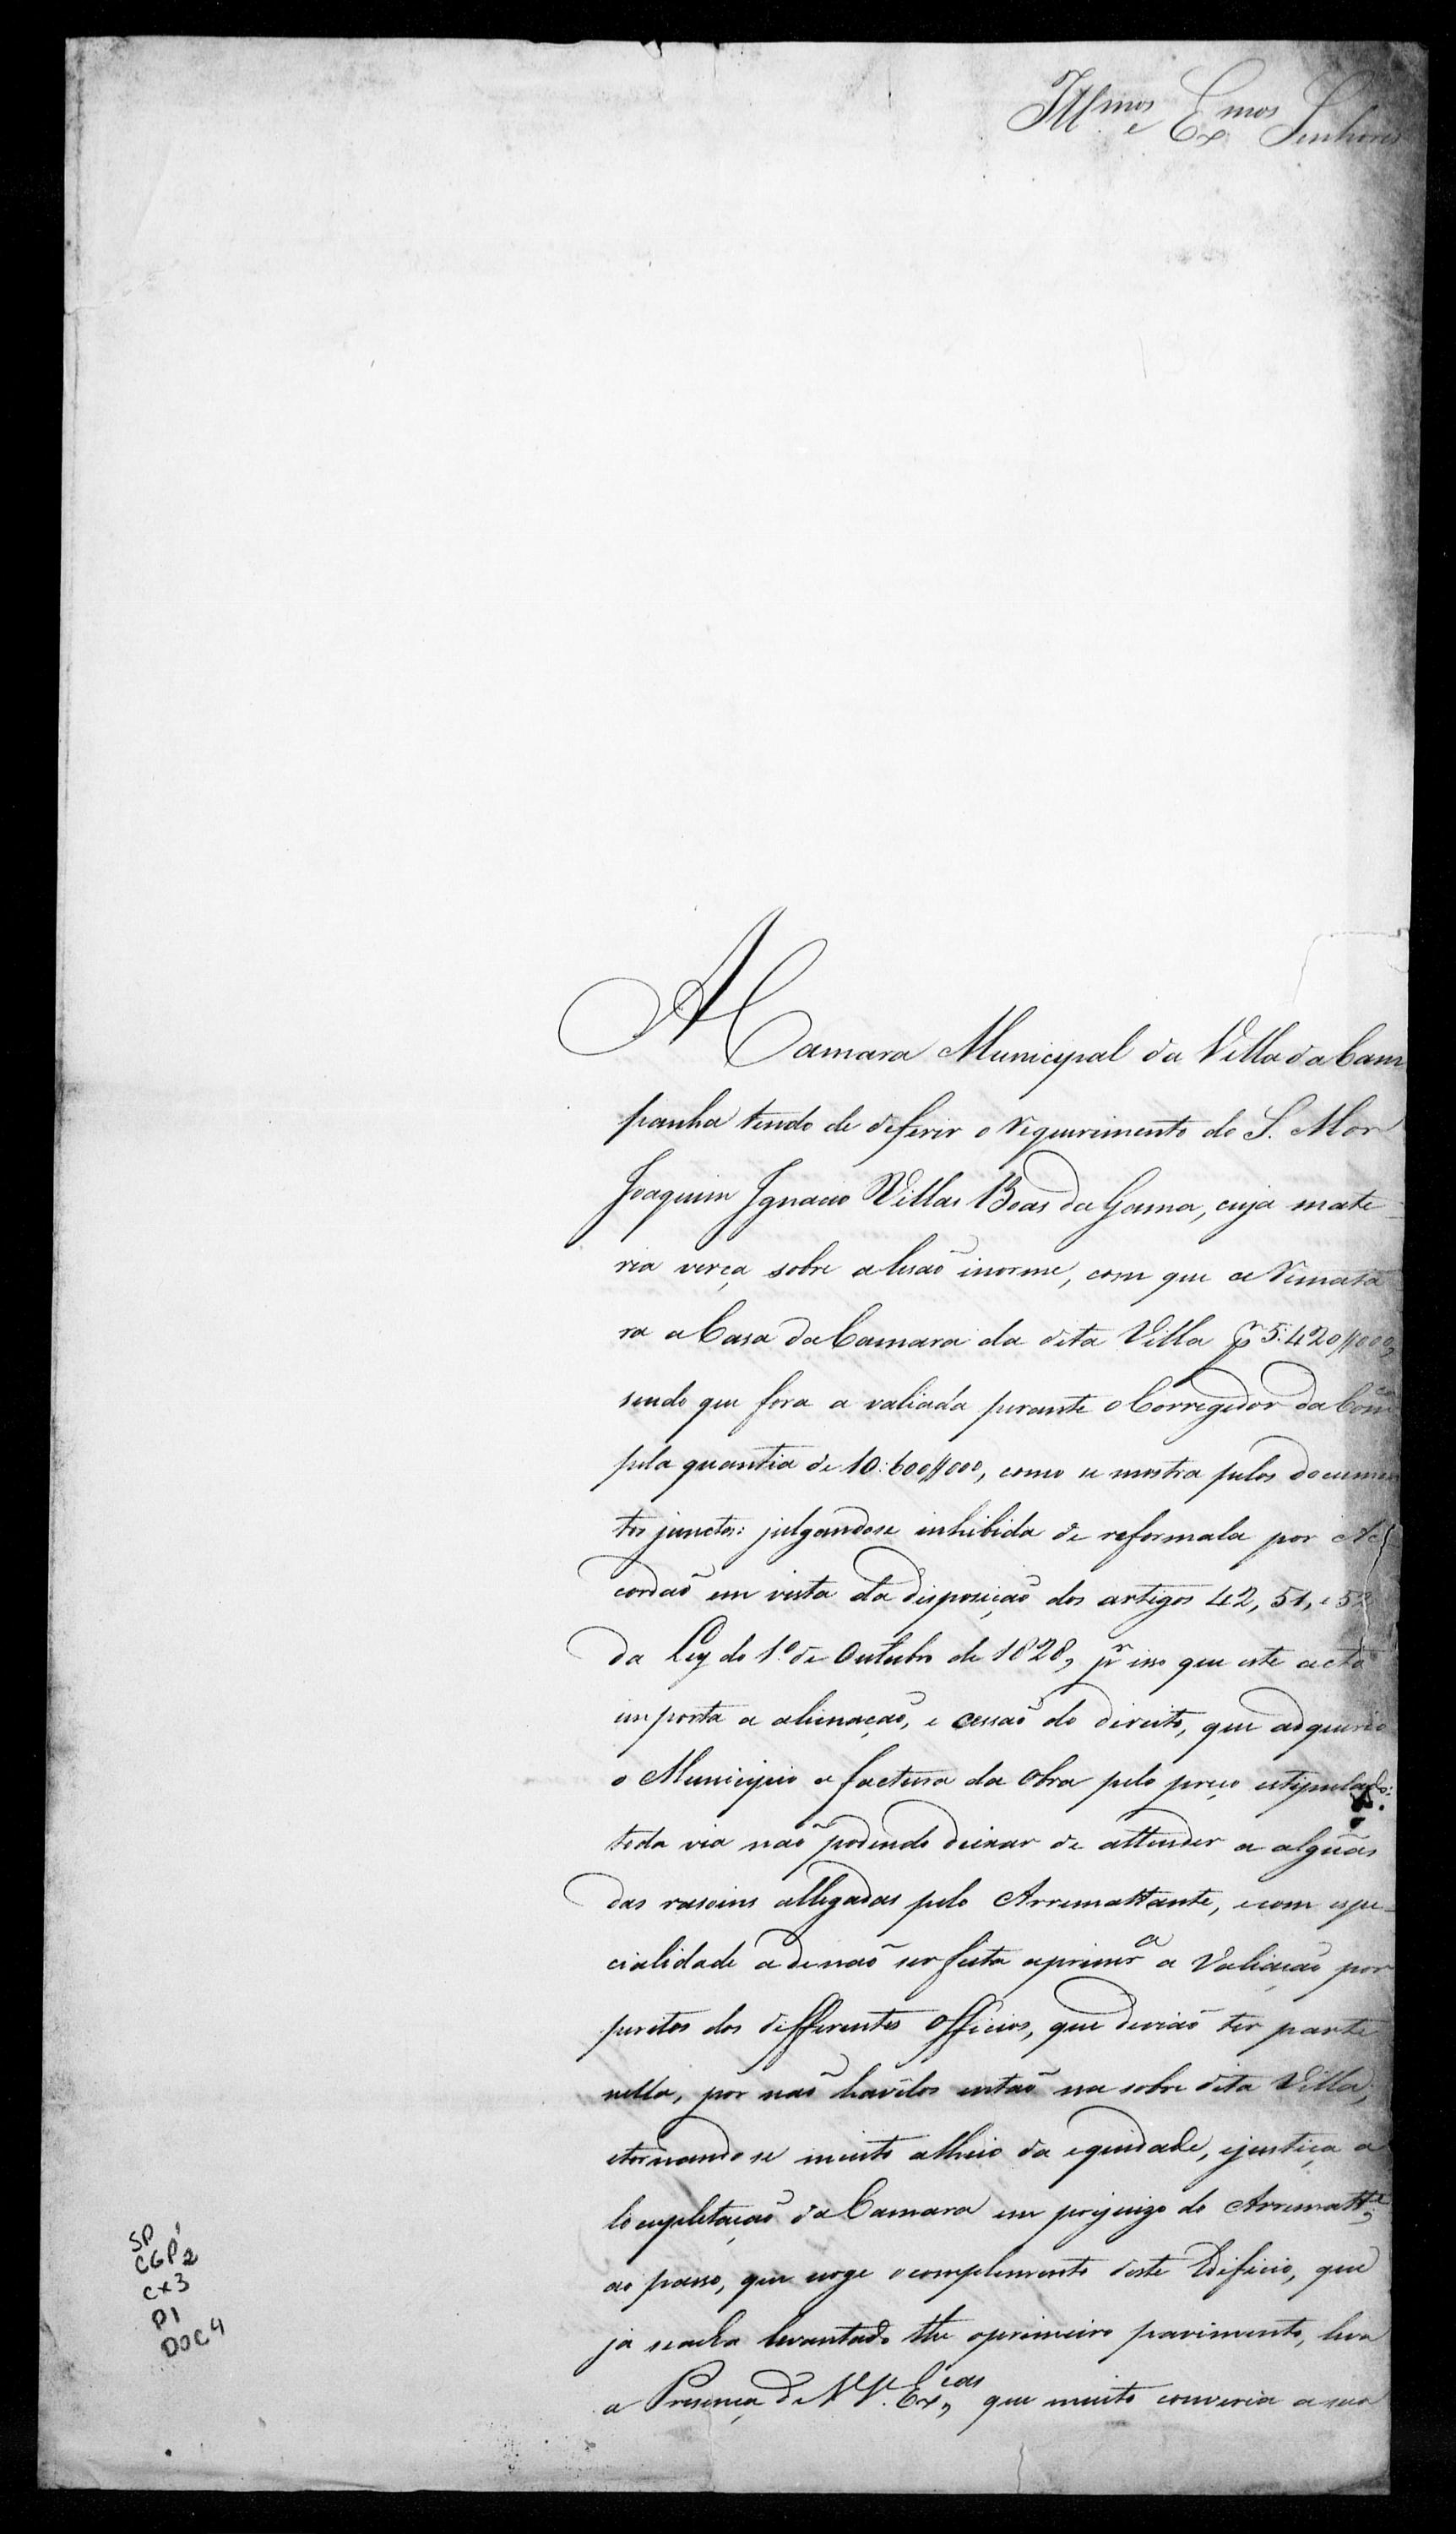 Illmos e Exmos Senhores
A Camara Municipal da Villa da Cam
panha tendo de deferir o requerimento do S. Mor
Joaquim Ignacio Villas Boas da Gama, cuja mate-
ria verça sobre a lesaõ inorme, com que a remata
ra a Casa da Camara da dita Villa pr 5:420$000,
sendo que fora a valiada perante o Corregedor da Comca
pela quantia de 10:600$000, como se mostra pelos documen
tos junctos: julgandose inhibida de reformala por Ac
cordaõ em vista da disposiçaõ dos artigos 42, 51, e 52
da Ley do 1º de Outubro de 1828, pr isso que este acto
importa a alienaçaõ, e cessaõ do direito, que adquerio
o Municipio a factura da Obra pelo preço estipulado:
toda via naõ podendo deixar de attender a algũas
das rasoins allegadas pelo Arremattante, e com espe-
cialidade a de naõ ser feita a primra a valiaçaõ por
peritos dos differentes Officios, que deviaõ ter parte
nella, por naõ havelos entaõ na sobre dita Villa;
e tornando se muito alheio da equidade, e justiça a
locupletaçaõ da Camara em prejuizo do Arrematte,
ao passo, que urge o complemento deste Edificio, que
já se acha levantado the o primeiro pavimento, leva
a Presença de VV. Excias, que muito conviria a sua
SP
CGP2
CX3
P1
DOC4